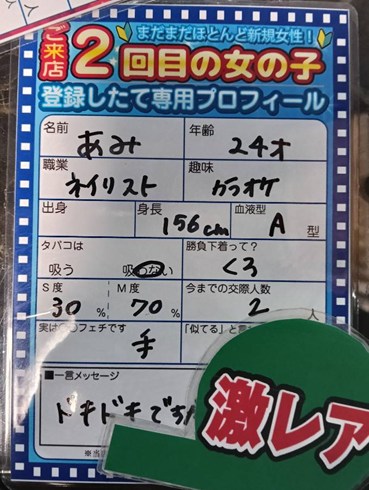 まだまだほとんど新規女性!
ご来店2回目の女の子
登録したて専用プロフィール
名前 あみ 年齢 24才
職業 ネイリスト 趣味 カラオケ
出身 身長 156cm 血液型 A 型
タバコは 吸う 吸わない 勝負下着って? くろ
S度 30% M度 70% 今までの交際人数 2人
フェチです 手 「似てる」と言
■一言メッセージ
ドキドキです
激レア